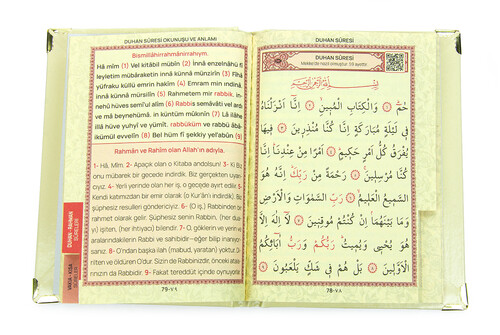 DUHAN SÛRESİ OKUNUŞU VE ANLAMI
Bismillâhirrahmânirrahîym.
Hâ mîm (1) Vel kitâbil mübîn (2) İnnâ enzelnâhü fî
leyletim mübâraketin innâ künnâ münzirîn (3) Fîhâ
yüfraku küllü emrin hakîm (4) Emram min ındinâ,
innâ künnâ mürsilîn (5) Rahmetem mir rabbik, in-
nehû hüves semî'ul alîm (6) Rabbis semâvâti vel ardı
ve mâ beynehümâ, in küntüm mûkınîn (7) Lâ ilâhe
illâ hüve yuhyî ve yümît, rabbüküm ve rabbü âbâ-
ikümül evvelîn (8) Bel hüm fî şekkiy yel'abûn (9)
Rahmân ve Rahîm olan Allah'ın adıyla.
1- Hâ, Mîm. 2- Apaçık olan o Kitaba andolsun! 3- Ki Biz
onu mübarek bir gecede indirdik. Biz gerçekten uyarı-
cıyız. 4- Yeri yerinde olan her iş, o geçede ayırt edilir. 5-
Kendi katımızdan bir emir olarak (o Kur'ân'ı indirdik). Biz
şüphesiz resulleri göndericiyiz. 6- (O iş), Rabbinden bir
rahmet olarak gelir. Şüphesiz senin Rabbin, (her du-
ayı) işiten, (her ihtiyacı) bilendir. 7- O, göklerin ve yerin ve
aralarındakilerin Rabbi ve sahibidir—eğer bilip inanıyor-
sanız. 8- O'ndan başka ilah (mabud, yaratan) yoktur. Di-
rilten ve öldüren O'dur. Sizin de Rabbinizdir, önceki ata-
larınızın da Rabbidir. 9- Fakat tereddüt içinde oynuyorlar.
79-٧٩
DUHAN SÛRESİ
DUHAN SÛRESİ
بِسْمِ اللّٰهِ الرَّحْمٰنِ الرَّحِيمِ
حٰمٓ ﴿١﴾ وَالْكِتَابِ الْمُبِينِ ﴿٢﴾ اِنَّٓا اَنْزَلْنَاهُ
فِي لَيْلَةٍ مُبَارَكَةٍ اِنَّا كُنَّا مُنْذِرِينَ ﴿٣﴾ فِيهَا
يُفْرَقُ كُلُّ اَمْرٍ حَكِيمٍ ﴿٤﴾ اَمْرًا مِنْ عِنْدِنَا اِنَّا
كُنَّا مُرْسِلِينَ ﴿٥﴾ رَحْمَةً مِنْ رَبِّكَ اِنَّهُ هُوَ
السَّمِيعُ الْعَلِيمُ ﴿٦﴾ رَبِّ السَّمٰوَاتِ وَالْاَرْضِ
وَمَا بَيْنَهُمَا اِنْ كُنْتُمْ مُوقِنِينَ ﴿٧﴾ لَٓا اِلٰهَ اِلَّا
هُوَ يُحْيِي وَيُمِيتُ رَبُّكُمْ وَرَبُّ اٰبَٓائِكُمُ
الْاَوَّلِينَ ﴿٨﴾ بَلْ هُمْ فِي شَكٍّ يَلْعَبُونَ ﴿٩﴾
78-٧٨